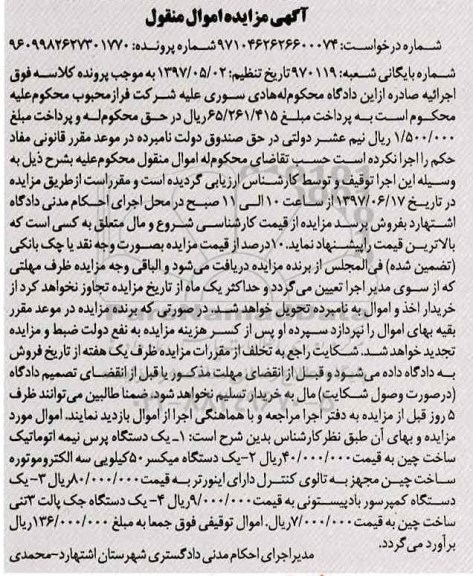 آگهی مزایده اموال منقول
شماره درخواست: ۹۷۱۰۴۶۲۶۲۶۶۰۰۰۷۴ شماره پرونده: ۹۶۰۹۹۸۲۶۲۷۳۰۱۷۷۰
شماره بایگانی شعبه: ۹۷۰۱۱۹ تاریخ تنظیم: ۱۳۹۷/۰۵/۰۲ به موجب پرونده کلاسه فوق
اجرائیه صادره ازاین دادگاه محکوم‌له‌هادی سوری علیه شرکت فرازمحبوب محکوم‌علیه
محکوم است به پرداخت مبلغ ۶۵/۲۶۱/۴۱۵ریال در حق محکوم‌لـه و پرداخت مبلغ
۱/۵۰۰/۰۰۰ ریال نیم عشر دولتی در حق صندوق دولت نامبرده در موعد مقرر قانونی مفاد
حکم را اجرا نکرده است حسب تقاضای محکوم‌له اموال منقول محکوم‌علیه بشرح ذیل به
وسیله این اجرا توقیف و توسط کارشناس ارزیابی گردیده است و مقرراست ازطریق مزایده
در تاریخ ۱۳۹۷/۰۶/۱۷ از ساعت ۱۰ الی ۱۱ صبح در محل اجرای احکام مدنی دادگاه
اشتهارد بفروش برسد مزایده از قیمت کارشناسی شروع و مال متعلق به کسی است که
بالاترین قیمت را پیشنهاد نماید. ۱۰درصد از قیمت مزایده بصورت وجه نقد یا چک بانکی
(تضمین شده) فی‌المجلس از برنده مزایده دریافت می‌شود و الباقی وجه مزایده ظرف مهلتی
که از سوی مدیر اجرا تعیین می‌گردد و حداکثر یک ماه از تاریخ مزایده تجاوز نخواهد کرد از
خریدار اخذ و اموال به نامبرده تحویل خواهد شد. در صورتی که برنده مزایده در موعد مقرر
بقیه بهای اموال را نپردازد سپرده او پس از کسر هزینه مزایده به نفع دولت ضبط و مزایده
تجدید خواهد شد. شکایت راجع به تخلف از مقررات مزایده ظرف یک هفته از تاریخ فروش
به دادگاه داده می‌شود و قبل از انقضای مهلت مذکور یا قبل از انقضای تصمیم دادگاه
(درصورت وصول شکایت) مال به خریدار تسلیم نخواهد شود. ضمنا طالبین می‌توانند ظرف
۵ روز قبل از مزایده به دفتر اجرا مراجعه و با هماهنگی اجرا از اموال بازدید نمایند. اموال مورد
مزایده و بهای آن طبق نظر کارشناس بدین شرح است: ۱ـ یک دستگاه پرس نیمه اتوماتیک
ساخت چین به قیمت ۴۰/۰۰۰/۰۰۰ریال ۲-یک دستگاه میکسر ۵۰کیلویی سه الکتروموتوره
ساخت چین مجهز به تالوی کنترل دارای اینورتر به قیمت۸۰/۰۰۰/۰۰۰ریال ۳- یک
دستگاه کمپرسور بادپیستونی به قیمت ۹/۰۰۰/۰۰۰ریال ۴- یک دستگاه جک پالت ۳تنی
ساخت چین به قیمت ۷/۰۰۰/۰۰۰ریال. اموال توقیفی فوق جمعا به مبلغ ۱۳۶/۰۰۰/۰۰۰ریال
برآورد می‌گردد.
مدیراجرای احکام مدنی دادگستری شهرستان اشتهارد-محمدی